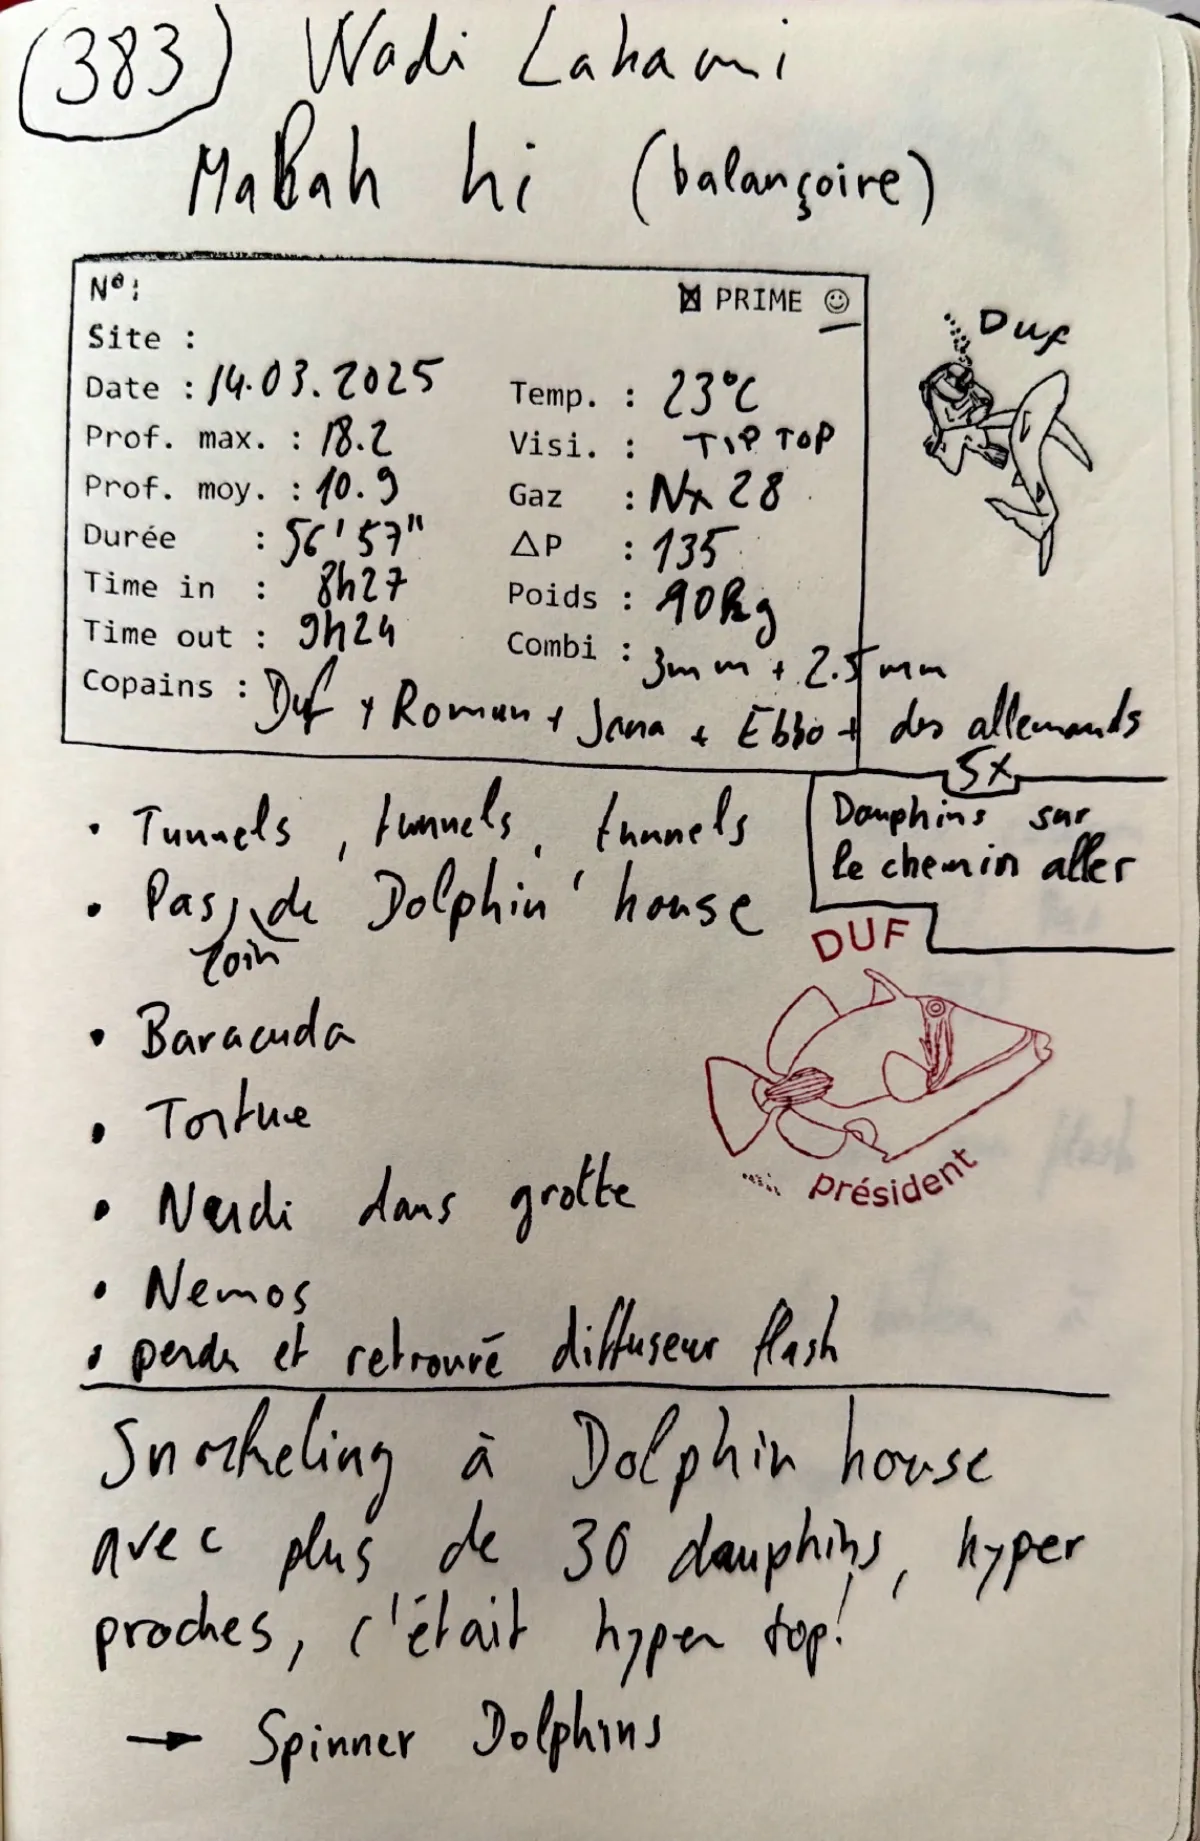 (383) Wadi Lahami
Makah hi (balançoire)
N°:
☒ PRIME ☺
Site :
Date : 14.03.2025
Temp. : 23°C
Prof. max. : 18.2
Visi. : TIP TOP
Prof. moy. : 10.9
Gaz : Nx 28
Durée : 56'57"
△P : 135
Time in : 8h27
Poids : 10kg
Time out : 9h24
Combi : 3mm + 2.5mm
Copains : Duf + Roman + Jana + Ebbo + des allemands
5x
Duf
• Tunnels, tunnels, tunnels
Dauphins sur
le chemin aller
• Pas loin de Dolphin' house
DUF
président
• Baracuda
• Tortue
• Nudi dans grotte
• Nemos
• perdu et retrouvé diffuseur flash
Snorkeling à Dolphin house
avec plus de 30 dauphins, hyper
proches, c'était hyper top!
→ Spinner Dolphins